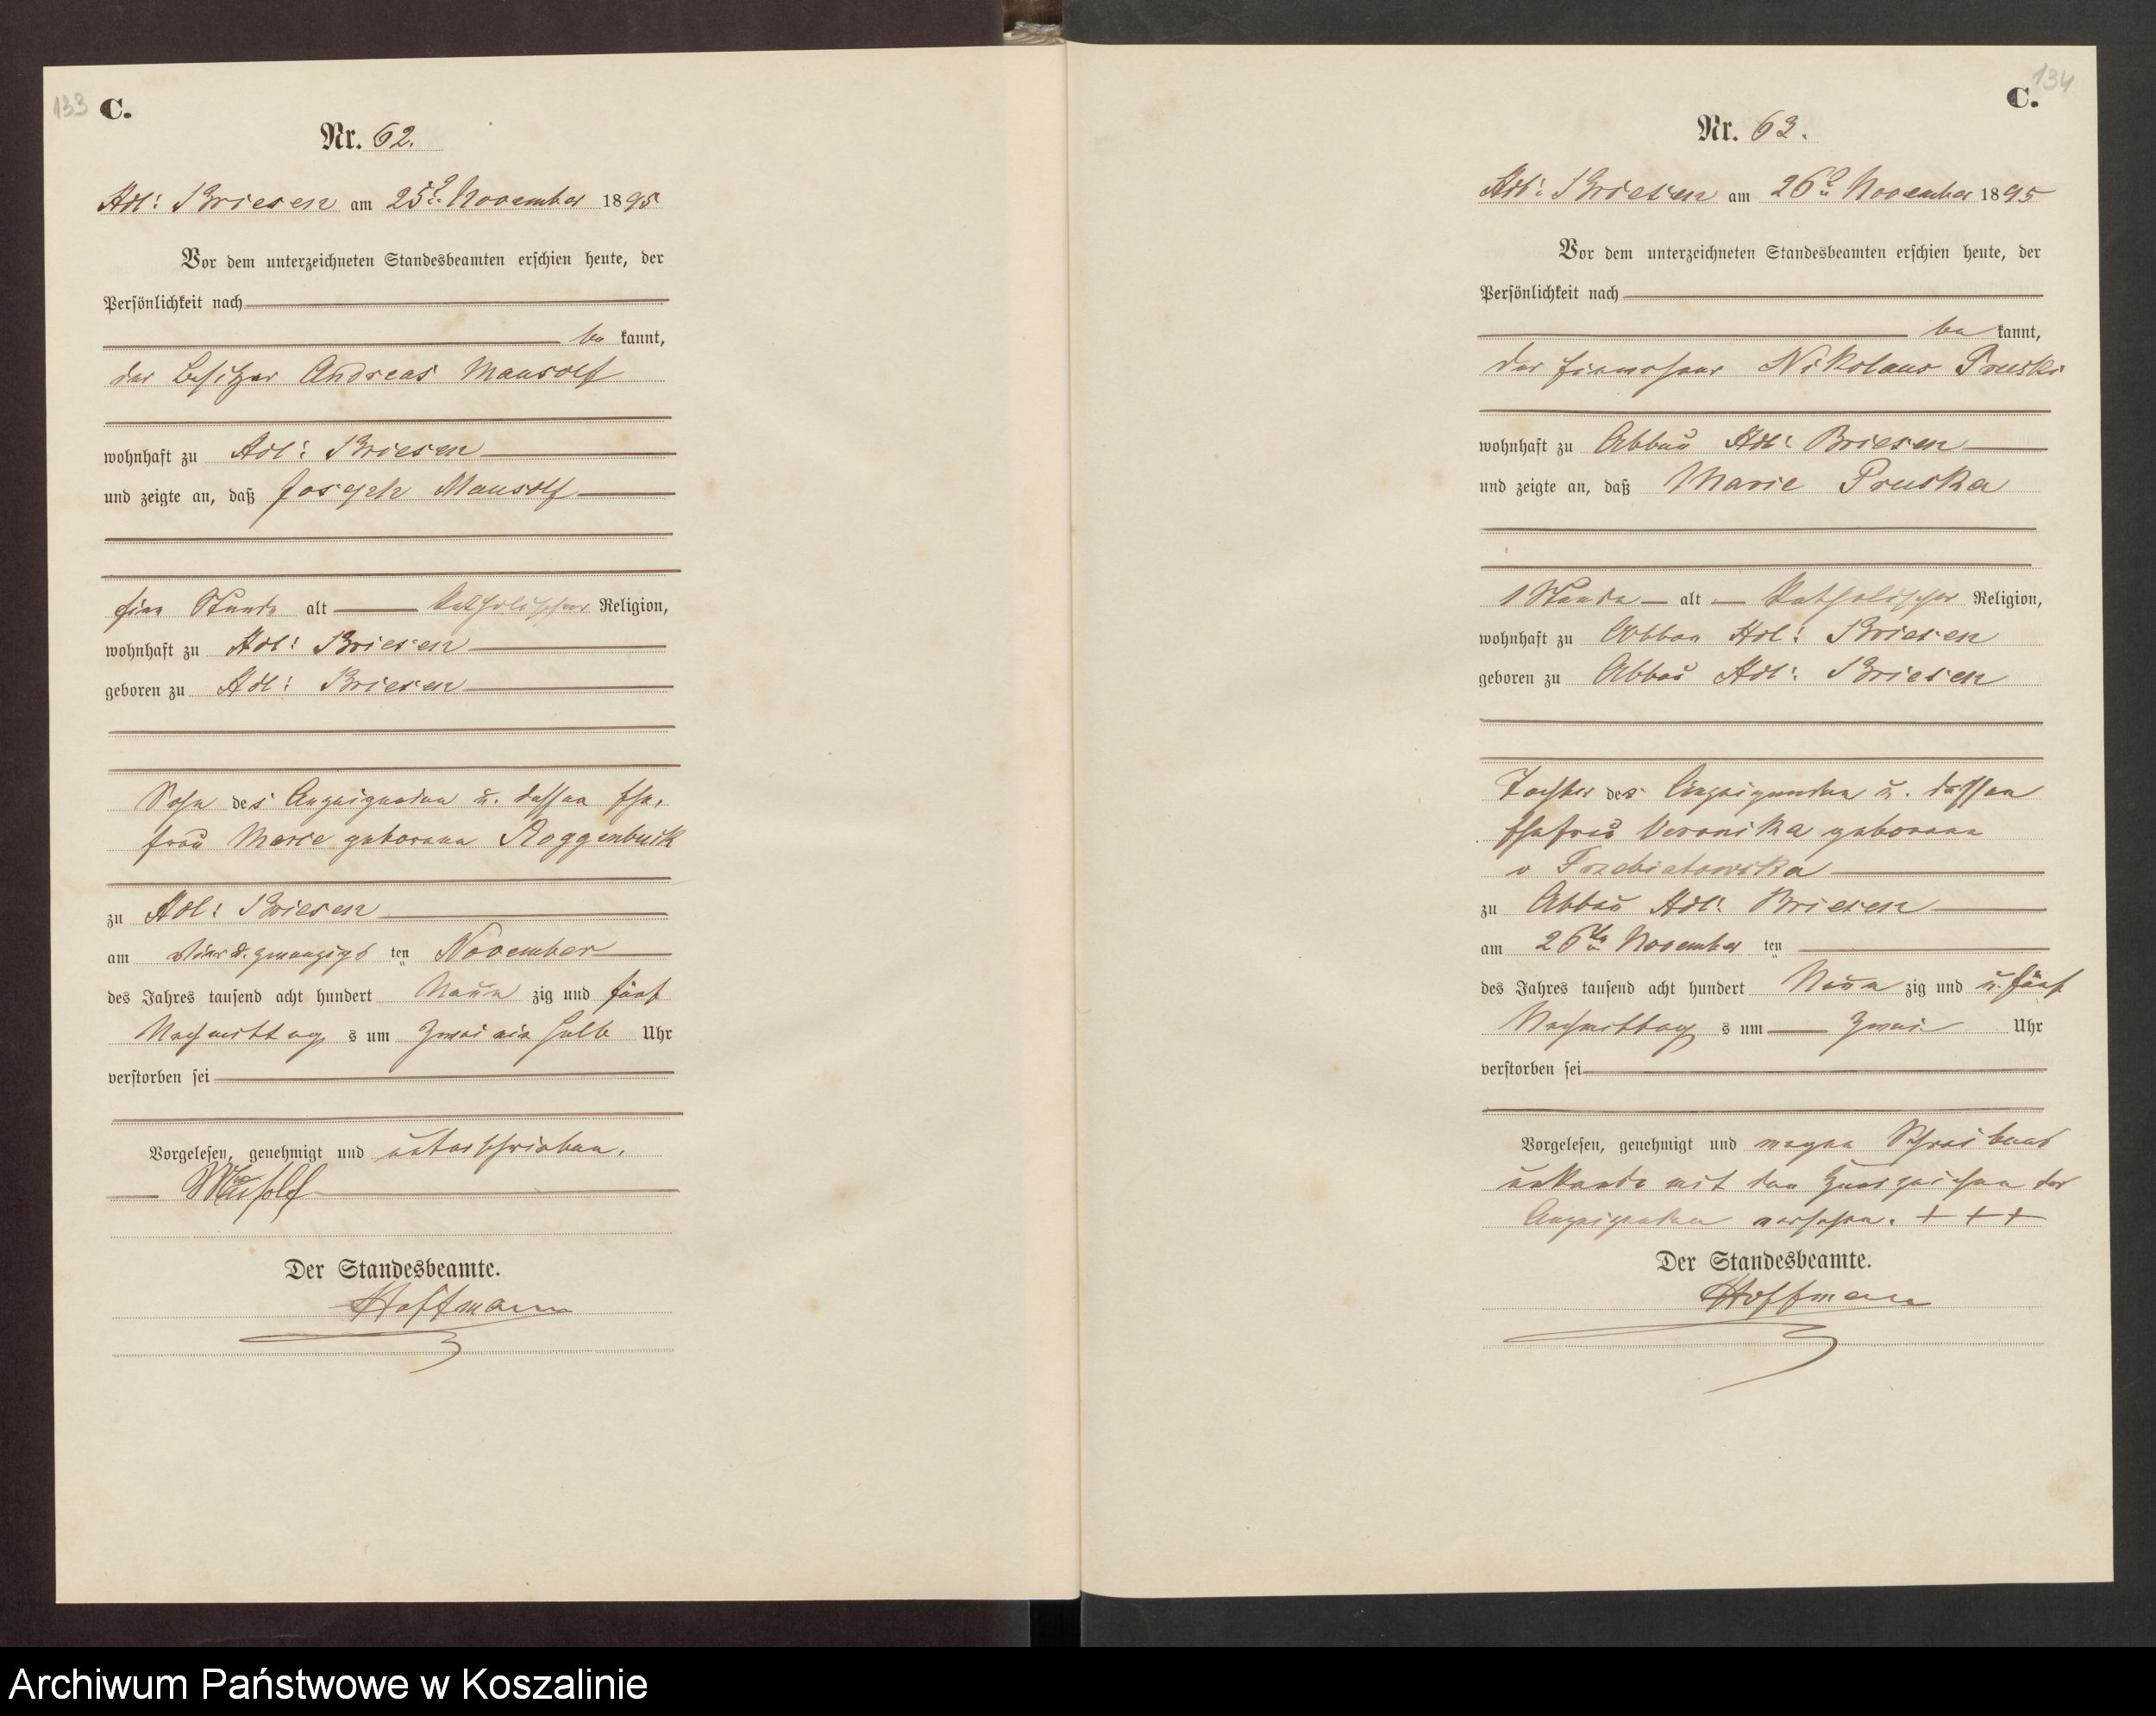 133 C.
Nr. 62.
Adl: Briesen am 25t November 1895
Vor dem unterzeichneten Standesbeamten erschien heute, der
Persönlichkeit nach
be kannt,
der Besitzer Andreas Mausolf
wohnhaft zu Adl: Briesen
und zeigte an, daß Joseph Mausolf
eine Stunde alt katholischer Religion,
wohnhaft zu Adl: Briesen
geboren zu Adl: Briesen
Sohn des Anzeigenden u. dessen Ehe,
frau Marie geborene Roggenbuck
zu Adl: Briesen
am vier u. zwanzigs ten November
des Jahres tausend acht hundert Neun zig und fünf
Nachmittag s um zwei ein halb Uhr
verstorben sei
Vorgelesen, genehmigt und unterschrieben.
Mausolf
Der Standesbeamte.
Hoffmann
134
C.
Nr. 63.
Adl: Briesen am 26t November 1895
Vor dem unterzeichneten Standesbeamten erschien heute, der
Persönlichkeit nach
be kannt,
der Einwohner Nikolaus Pruski
wohnhaft zu Abbau Adl: Briesen
und zeigte an, daß Marie Pruska
1 Stunde alt katholischer Religion,
wohnhaft zu Abbau Adl: Briesen
geboren zu Abbau Adl: Briesen
Tochter des Anzeigenden u. dessen
Ehefrau Veronika geborene
v Trzebiatowska
zu Abbau Adl: Briesen
am 26ten November ten
des Jahres tausend acht hundert Neun zig und u. fünf
Nachmittag s um zwei Uhr
verstorben sei
Vorgelesen, genehmigt und wegen Schreibens
unkunde mit den Handzeichen der
Anzeigenden versehen. + + +
Der Standesbeamte.
Hoffmann
Archiwum Państwowe w Koszalinie